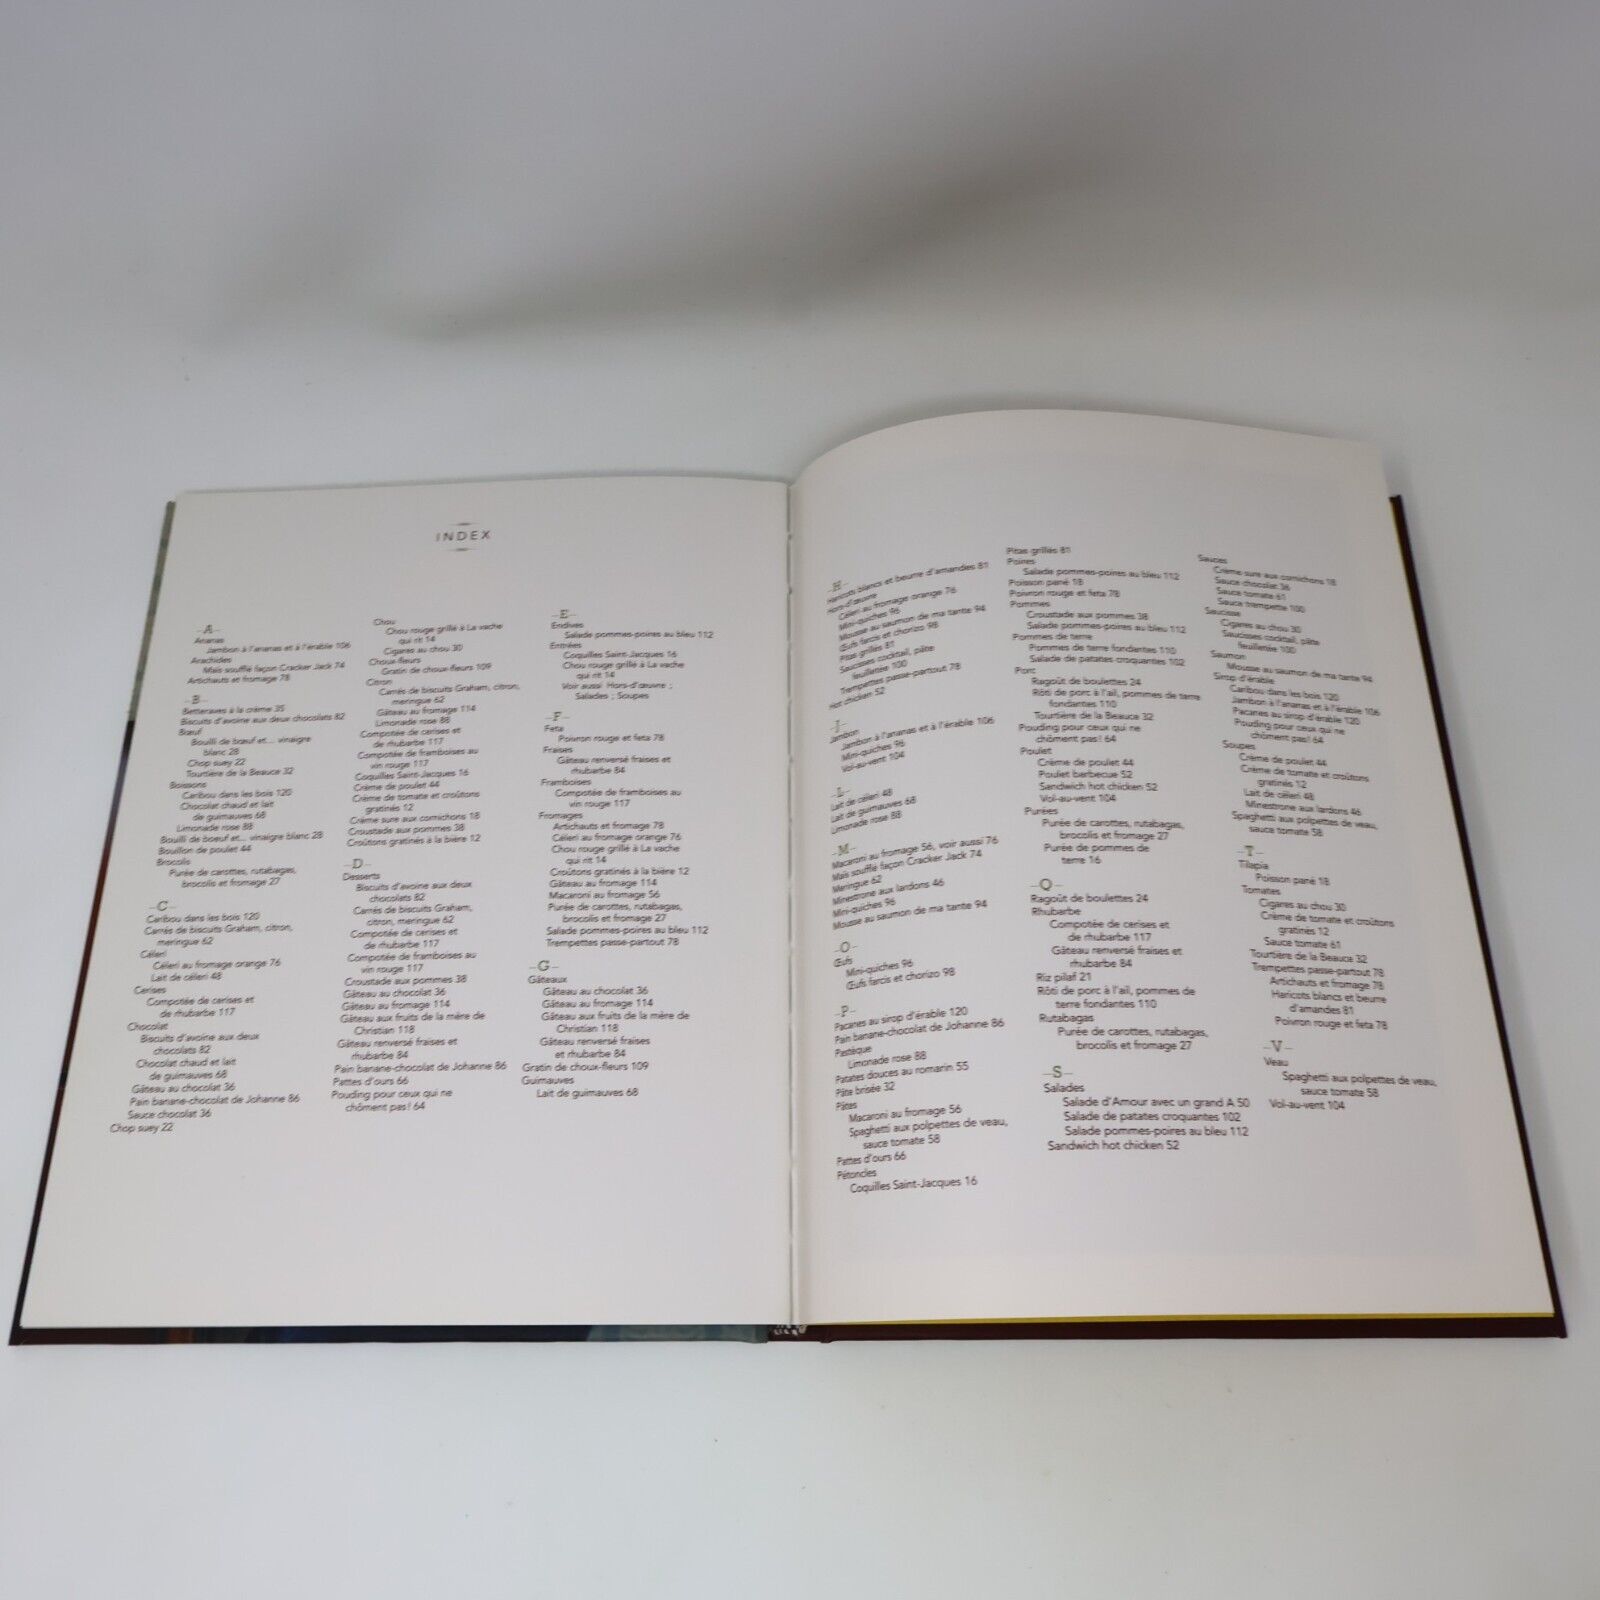 INDEX
–A–
Ananas
Jambon à l'ananas et à l'érable 106
Arachides
Maïs soufflé façon Cracker Jack 74
Artichauts et fromage 78
–B–
Betteraves à la crème 35
Biscuits d'avoine aux deux chocolats 82
Bœuf
Bouilli de bœuf et... vinaigre
blanc 28
Chop suey 22
Tourtière de la Beauce 32
Boissons
Caribou dans les bois 120
Chocolat chaud et lait
de guimauves 68
Limonade rose 88
Bouilli de boeuf et... vinaigre blanc 28
Bouillon de poulet 44
Brocolis
Purée de carottes, rutabagas,
brocolis et fromage 27
–C–
Caribou dans les bois 120
Carrés de biscuits Graham, citron,
meringue 62
Céleri
Céleri au fromage orange 76
Lait de céleri 48
Cerises
Compotée de cerises et
de rhubarbe 117
Chocolat
Biscuits d'avoine aux deux
chocolats 82
Chocolat chaud et lait
de guimauves 68
Gâteau au chocolat 36
Pain banane-chocolat de Johanne 86
Sauce chocolat 36
Chop suey 22
Chou
Chou rouge grillé à La vache
qui rit 14
Cigares au chou 30
Choux-fleurs
Gratin de choux-fleurs 109
Citron
Carrés de biscuits Graham, citron,
meringue 62
Gâteau au fromage 114
Limonade rose 88
Compotée de cerises et
de rhubarbe 117
Compotée de framboises au
vin rouge 117
Coquilles Saint-Jacques 16
Crème de poulet 44
Crème de tomate et croûtons
gratinés 12
Crème sure aux cornichons 18
Croustade aux pommes 38
Croûtons gratinés à la bière 12
–D–
Desserts
Biscuits d'avoine aux deux
chocolats 82
Carrés de biscuits Graham,
citron, meringue 62
Compotée de cerises et
de rhubarbe 117
Compotée de framboises au
vin rouge 117
Croustade aux pommes 38
Gâteau au chocolat 36
Gâteau au fromage 114
Gâteau aux fruits de la mère de
Christian 118
Gâteau renversé fraises et
rhubarbe 84
Pain banane-chocolat de Johanne 86
Pattes d'ours 66
Pouding pour ceux qui ne
chôment pas! 64
–E–
Endives
Salade pommes-poires au bleu 112
Entrées
Coquilles Saint-Jacques 16
Chou rouge grillé à La vache
qui rit 14
Voir aussi Hors-d'œuvre ;
Salades ; Soupes
–F–
Feta
Poivron rouge et feta 78
Fraises
Gâteau renversé fraises et
rhubarbe 84
Framboises
Compotée de framboises au
vin rouge 117
Fromages
Artichauts et fromage 78
Céleri au fromage orange 76
Chou rouge grillé à La vache
qui rit 14
Croûtons gratinés à la bière 12
Gâteau au fromage 114
Macaroni au fromage 56
Purée de carottes, rutabagas,
brocolis et fromage 27
Salade pommes-poires au bleu 112
Trempettes passe-partout 78
–G–
Gâteaux
Gâteau au chocolat 36
Gâteau au fromage 114
Gâteau aux fruits de la mère de
Christian 118
Gâteau renversé fraises
et rhubarbe 84
Gratin de choux-fleurs 109
Guimauves
Lait de guimauves 68
–H–
Haricots blancs et beurre d'amandes 81
Hors-d'œuvre
Céleri au fromage orange 76
Mini-quiches 96
Mousse au saumon de ma tante 94
Œufs farcis et chorizo 98
Pitas grillés 81
Saucisses cocktail, pâte
feuilletée 100
Trempettes passe-partout 78
Hot chicken 52
–J–
Jambon
Jambon à l'ananas et à l'érable 106
Mini-quiches 96
Vol-au-vent 104
–L–
Lait de céleri 48
Lait de guimauves 68
Limonade rose 88
–M–
Macaroni au fromage 56, voir aussi 76
Maïs soufflé façon Cracker Jack 74
Meringue 62
Minestrone aux lardons 46
Mini-quiches 96
Mousse au saumon de ma tante 94
–O–
Œufs
Mini-quiches 96
Œufs farcis et chorizo 98
–P–
Pacanes au sirop d'érable 120
Pain banane-chocolat de Johanne 86
Pastèque
Limonade rose 88
Patates douces au romarin 55
Pâte brisée 32
Pâtes
Macaroni au fromage 56
Spaghetti aux polpettes de veau,
sauce tomate 58
Pattes d'ours 66
Pétoncles
Coquilles Saint-Jacques 16
Pitas grillés 81
Poires
Salade pommes-poires au bleu 112
Poisson pané 18
Poivron rouge et feta 78
Pommes
Croustade aux pommes 38
Salade pommes-poires au bleu 112
Pommes de terre
Pommes de terre fondantes 110
Salade de patates croquantes 102
Porc
Ragoût de boulettes 24
Rôti de porc à l'ail, pommes de terre
fondantes 110
Tourtière de la Beauce 32
Pouding pour ceux qui ne
chôment pas! 64
Poulet
Crème de poulet 44
Poulet barbecue 52
Sandwich hot chicken 52
Vol-au-vent 104
Purées
Purée de carottes, rutabagas,
brocolis et fromage 27
Purée de pommes de
terre 16
–Q–
Ragoût de boulettes 24
Rhubarbe
Compotée de cerises et
de rhubarbe 117
Gâteau renversé fraises et
rhubarbe 84
Riz pilaf 21
Rôti de porc à l'ail, pommes de
terre fondantes 110
Rutabagas
Purée de carottes, rutabagas,
brocolis et fromage 27
–S–
Salades
Salade d'Amour avec un grand A 50
Salade de patates croquantes 102
Salade pommes-poires au bleu 112
Sandwich hot chicken 52
Sauces
Crème sure aux cornichons 18
Sauce chocolat 36
Sauce tomate 61
Sauce trempette 100
Saucisse
Cigares au chou 30
Saucisses cocktail, pâte
feuilletée 100
Saumon
Mousse au saumon de ma tante 94
Sirop d'érable
Caribou dans les bois 120
Jambon à l'ananas et à l'érable 106
Pacanes au sirop d'érable 120
Pouding pour ceux qui ne
chôment pas! 64
Soupes
Crème de poulet 44
Crème de tomate et croûtons
gratinés 12
Lait de céleri 48
Minestrone aux lardons 46
Spaghetti aux polpettes de veau,
sauce tomate 58
–T–
Tilapia
Poisson pané 18
Tomates
Cigares au chou 30
Crème de tomate et croûtons
gratinés 12
Sauce tomate 61
Tourtière de la Beauce 32
Trempettes passe-partout 78
Artichauts et fromage 78
Haricots blancs et beurre
d'amandes 81
Poivron rouge et feta 78
–V–
Veau
Spaghetti aux polpettes de veau,
sauce tomate 58
Vol-au-vent 104